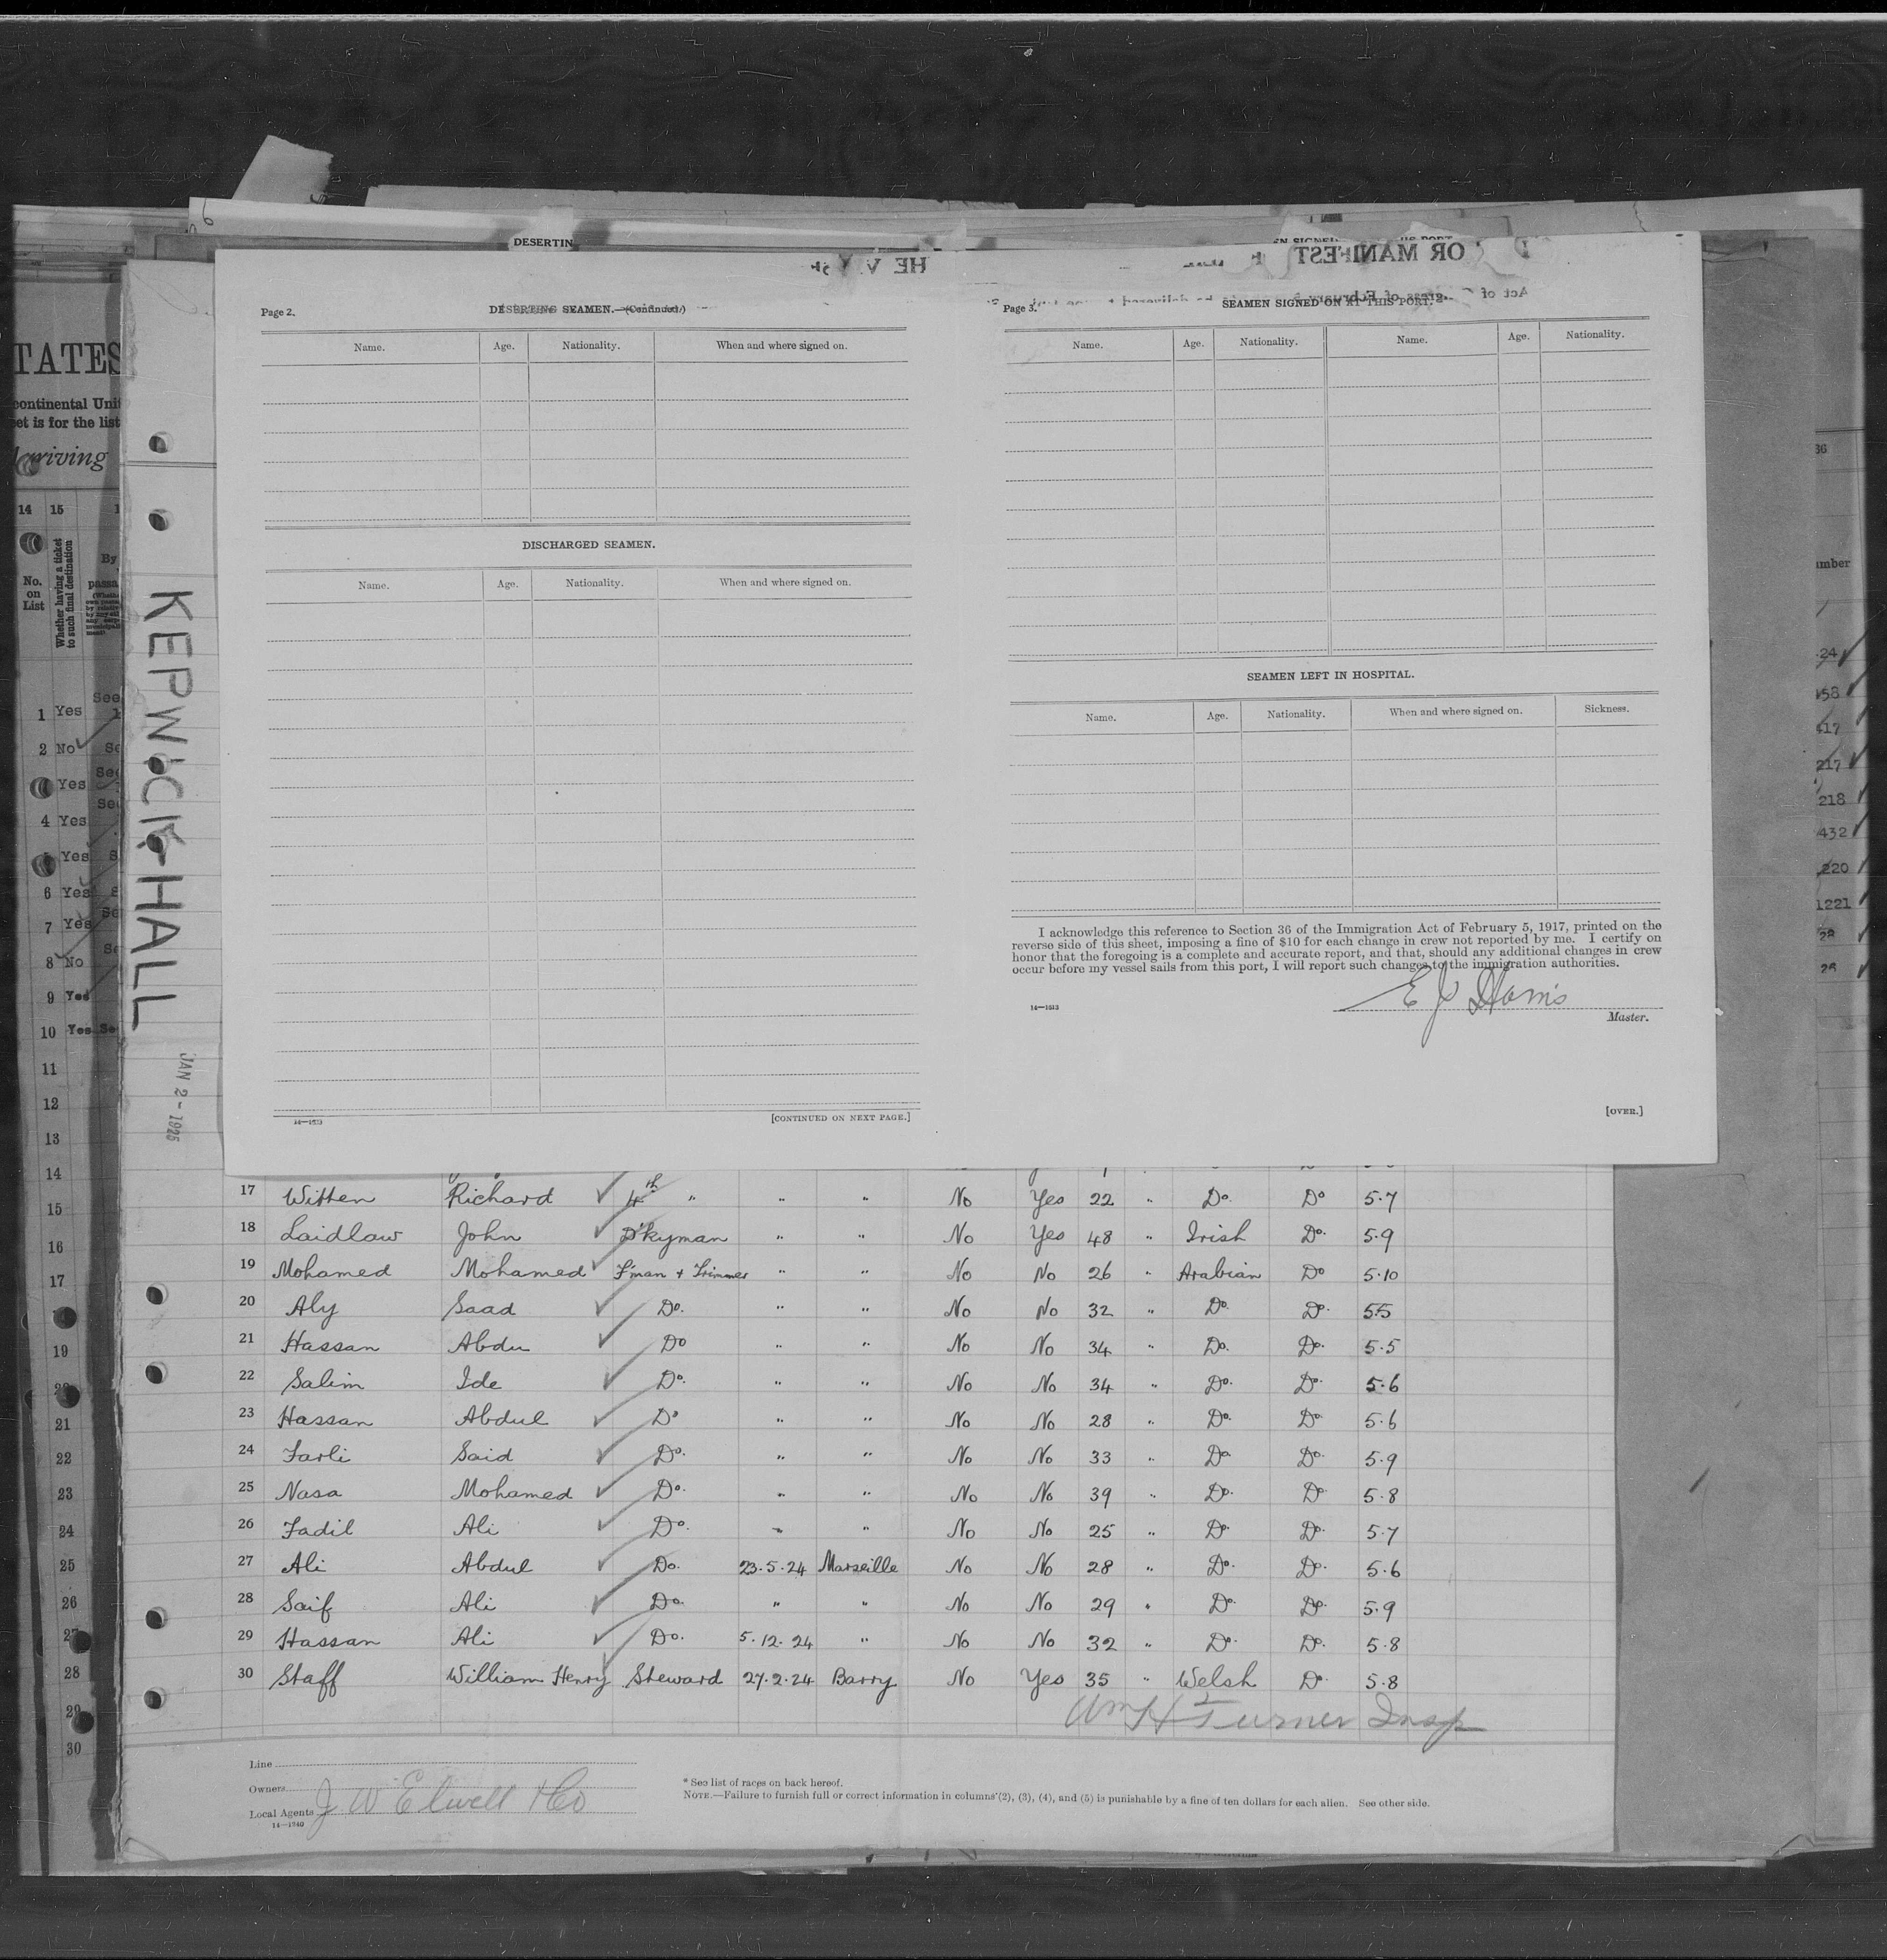 DESERTIN
OR MANIFEST
Page 2.
DESERTING SEAMEN.—(Continued)
Name. Age. Nationality. When and where signed on.
DISCHARGED SEAMEN.
Name. Age. Nationality. When and where signed on.
14—1523
[CONTINUED ON NEXT PAGE.]
Page 3.
SEAMEN SIGNED ON AT THIS PORT.
Name. Age. Nationality. Name. Age. Nationality.
SEAMEN LEFT IN HOSPITAL.
Name. Age. Nationality. When and where signed on. Sickness.
I acknowledge this reference to Section 36 of the Immigration Act of February 5, 1917, printed on the
reverse side of this sheet, imposing a fine of $10 for each change in crew not reported by me. I certify on
honor that the foregoing is a complete and accurate report, and that, should any additional changes in crew
occur before my vessel sails from this port, I will report such changes to the immigration authorities.
Master.
[OVER.]
TATES
continental Unit
et is for the list
rriving
14 15
No.
on
List
Whether having a ticket
to such final destination
By
passa
1 Yes See
2 No
Yes
4 Yes
Yes
6 Yes
7 Yes
8 No
9 Yes
10 Yes Se
11
12
13
14
15
16
17
19
21
22
23
24
25
26
28
30
KEPWICK-HALL
JAN 2 - 1925
36
umber
218
432
220
1221
17 Witten Richard 4th " " " No Yes 22 " Do. Do 5.7
18 Laidlaw John D'kyman " " No Yes 48 " Irish Do. 5.9
19 Mohamed Mohamed F'man + Trimmer " " No No 26 " Arabian Do 5.10
20 Aly Saad Do. " " No No 32 " Do. Do. 5.5
21 Hassan Abdu Do " " No No 34 " Do. Do. 5.5
22 Salim Ide Do. " " No No 34 " Do. Do. 5.6
23 Hassan Abdul Do " " No No 28 " Do. Do. 5.6
24 Farli Said Do. " " No No 33 " Do Do. 5.9
25 Nasa Mohamed Do. " " No No 39 " Do. Do 5.8
26 Fadil Ali Do. " " No No 25 " Do. Do. 5.7
27 Ali Abdul Do. 23.5.24 Marseille No No 28 " Do. Do. 5.6
28 Saif Ali Do. " " No No 29 " Do. Do. 5.9
29 Hassan Ali Do. 5.12.24 " No No 32 " Do. Do. 5.8
30 Staff William Henry Steward 27.2.24 Barry No Yes 35 " Welsh Do. 5.8
Wm H Turner Insp
Line
Owners
Local Agents J W Elwell & Co
14—1240
* See list of races on back hereof.
NOTE.—Failure to furnish full or correct information in columns (2), (3), (4), and (5) is punishable by a fine of ten dollars for each alien. See other side.